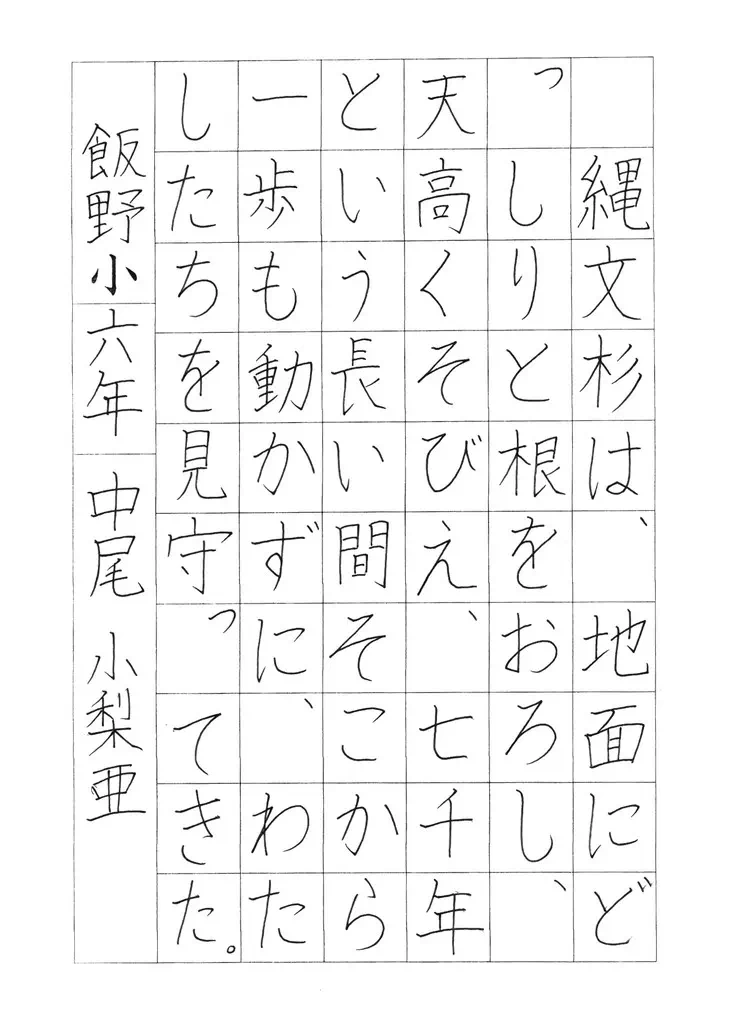 縄文杉は、地面にど
っしりと根をおろし、
天高くそびえ、七千年
という長い間そこから
一歩も動かずに、わた
したちを見守ってきた。
飯野小 六年 中尾 小梨亜